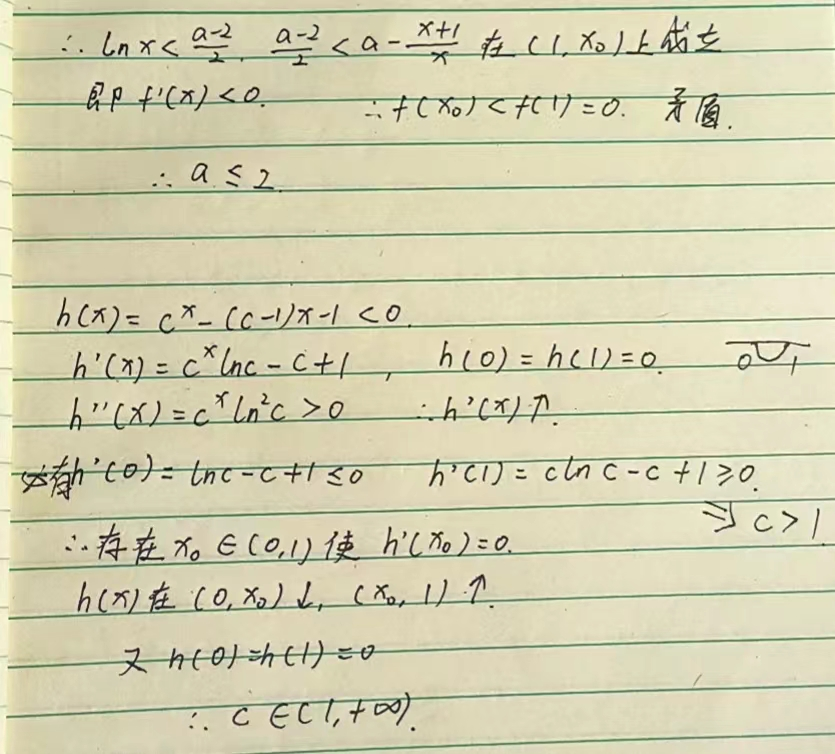 ∴ ln x < (a-2)/2, (a-2)/2 < a - (x+1)/x 在 (1, x₀) 上成立
即 f'(x) < 0. ∴ f(x₀) < f(1) = 0. 矛盾.
∴ a ≤ 2.
h(x) = cˣ - (c-1)x - 1 < 0.
h'(x) = cˣ ln c - c + 1 , h(0) = h(1) = 0. 0 1
h''(x) = cˣ ln²c > 0 ∴ h'(x) ↑.
必有 h'(0) = ln c - c + 1 ≤ 0 h'(1) = c ln c - c + 1 ≥ 0.
⇒ c > 1
∴ 存在 x₀ ∈ (0,1) 使 h'(x₀) = 0.
h(x) 在 (0, x₀) ↓, (x₀, 1) ↑.
又 h(0) = h(1) = 0
∴ c ∈ (1, +∞).